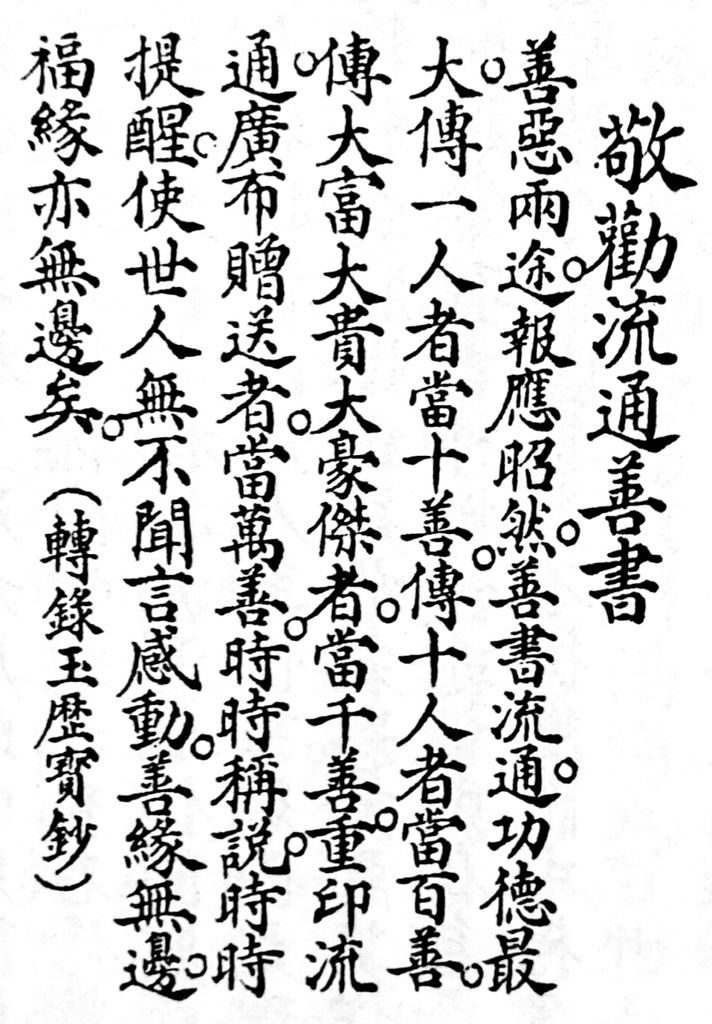 敬勸流通善書
善惡兩途。報應昭然。善書流通。功德最
大。傳一人者當十善。傳十人者當百善。
傳大富大貴大豪傑者。當千善。重印流
通。廣布贈送者。當萬善。時時稱説。時時
提醒。使世人無不聞言感動。善緣無邊。
福緣亦無邊矣。(轉錄玉歷寶鈔)